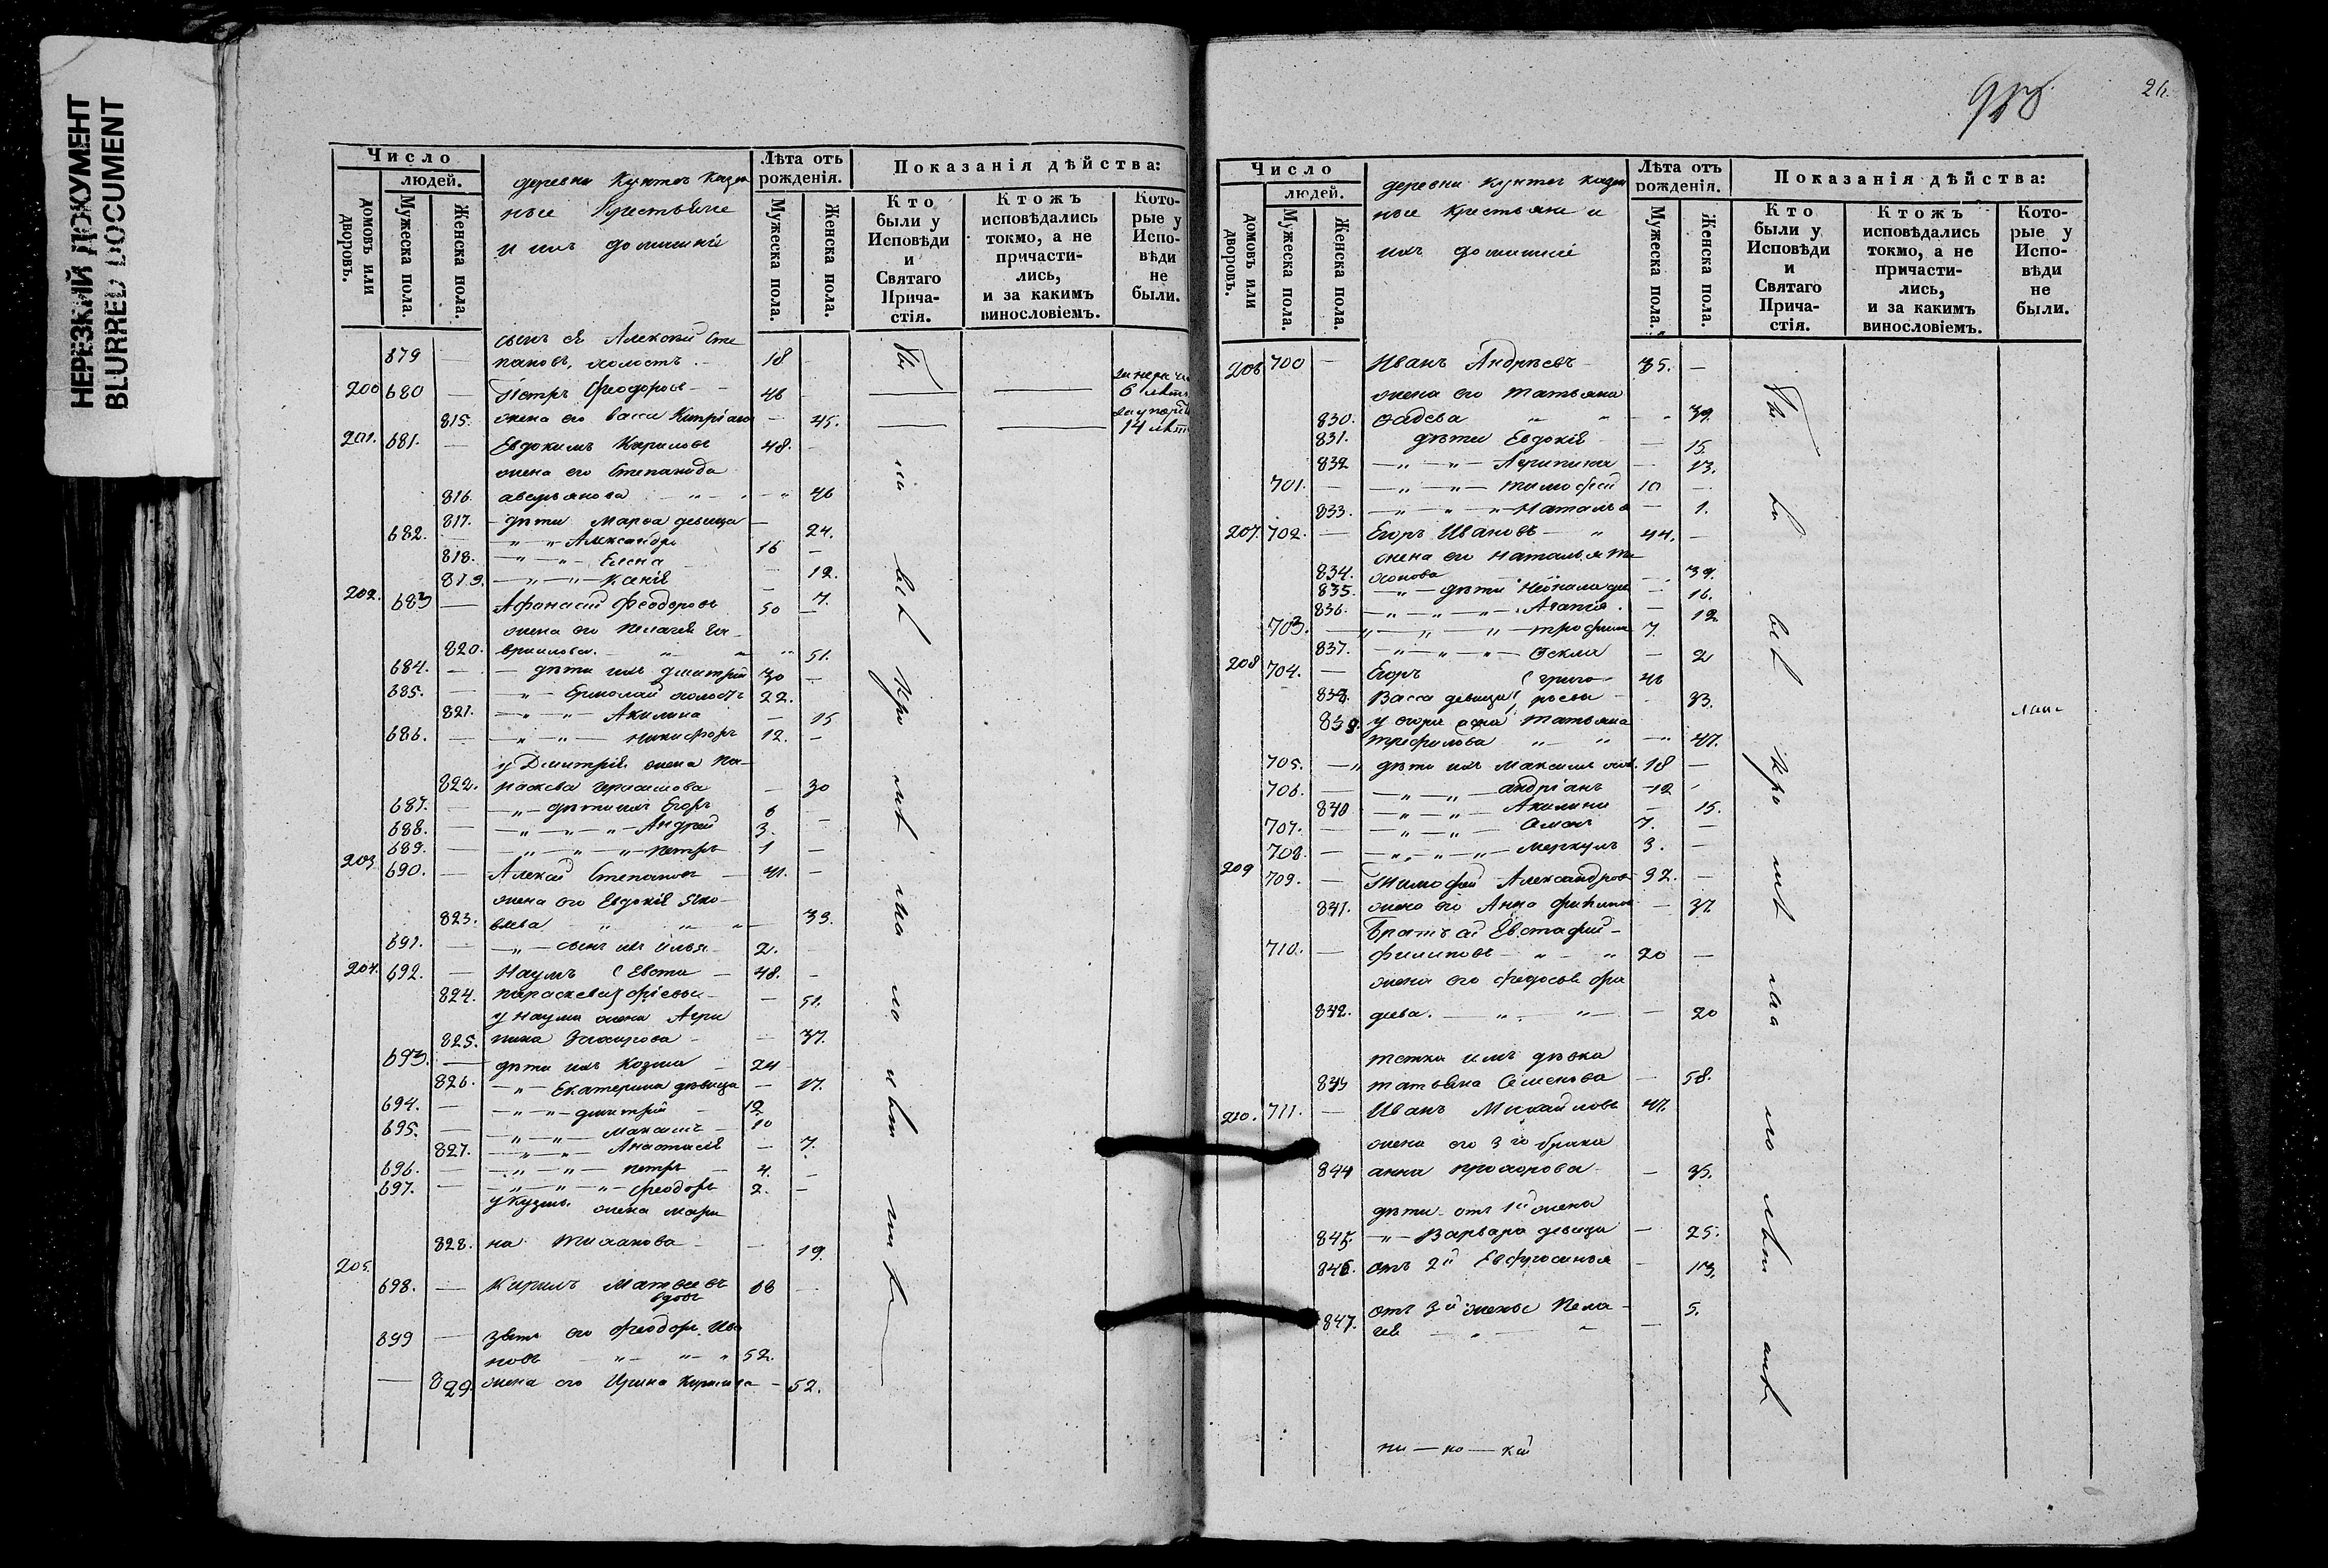 НЕРЕЗКИЙ ДОКУМЕНТ
BLURRED DOCUMENT
Число
людей.
домовъ или дворовъ.
Мужеска пола.
Женска пола.
деревни Казен
ные Крестьяне
и ихъ домашнии
Лѣта отъ рожденія.
Мужеска пола.
Женска пола.
Показанія дѣйства:
Кто были у Исповѣди и Святаго Прича-стія.
Ктожъ исповѣдались токмо, а не причасти-лись, и за какимъ винословіемъ.
Кото-рые у Испо-вѣди не были.
сынъ ея Алексѣй Сте
879 — пановъ, холостъ. 18 —
200 680 — Петръ Феодоровъ 46 —
6 лѣтъ
815. жена его Васса — 45.
14 лѣт
201. 681. — Евдокимъ Кириловъ 48. —
жена его Степанида
816. аверьянова — 46
817. дѣти Марѳа девица — 24.
682. — Александръ 16 —
818. Елена — 12.
819. Ксенія — 7.
202. 683 — Афонасий Феодоровъ 50 —
жена его Пелагея Га-
820. врилова. 51.
684. — дѣти ихъ дмитрий 30 —
685. — Ермолай холостъ 22.
821. Акилина — 15
686. — Никифоръ 12. —
у Дмитрія жена Па-
822. раскева Герасимова — 30
687. — дѣти ихъ Егоръ 6 —
688. — Андрей 3. —
689. — Петръ 1 —
203 690. — Алексѣй Степановъ — 41. —
жена его Евдокія Яко-
823. влева 33.
691. — сынъ их Илья 2.
204. 692. — Наумъ Евста — 48. —
824. параскевия фіевы — 51.
у Наума жена Агри
825. пина Захарова — 37.
693. — дѣти ихъ Козма 24
826. Екатерина дѣвица — 17.
694. — дмитрій 12
695. — Максимъ 10
827. Анастасія — 7.
696. — петръ 4. —
697. — феодоръ 2. —
у Кузмы жена Мари
828. на Тиханова — 19.
205. 698. — Кирилъ Матвеевъ
вдовъ —
899 — зять его Феодоръ Ива
новъ 52.
— 829. жена его Ирина Кирилова — 52.
26.
Число
людей.
домовъ или дворовъ.
Мужеска пола.
Женска пола.
деревни Казен
ные Крестьяне и
ихъ домашніе
Лѣта отъ рожденія.
Мужеска пола.
Женска пола.
Показанія дѣйства:
Кто были у Исповѣди и Святаго Прича-стія.
Ктожъ исповѣдались токмо, а не причасти-лись, и за какимъ винословіемъ.
Кото-рые у Испо-вѣди не были.
206 700 — Иванъ Андреевъ 35. —
жена его Татьяна
830. Фадеева 39.
831. дѣти Евдокія — 15.
832 Агрипина — 13.
701. — Тимофей 10 —
833. Наталья — 1.
207. 702. — Егоръ Ивановъ 44. —
жена его Наталья Ти
834. хонова — 39.
835. дѣти — 16.
836. Агапія. — 12
703. — трофимъ 7.
837. Ѳекла — 2
208 704. — Егоръ григо- 46
838. Васса девица рьевы — 33.
839 у егора жена Татьяна
трефилова 47.
705. — дѣти ихъ Максимъ хол. 18 —
706. — андріанъ 12
840 Акилина — 15.
707. — 7. —
708. — Меркулъ 3. —
209 709. — Тимофей Александровъ 32. —
841. жена его Анна филипова — 37
Братъ ей Евстафий
710. — Филиповъ 20 —
жена его Федосья фа
842. деева. — 20
тетка имъ дѣвка
843 татьяна Семенова — 58.
210. 711. — Иванъ Михайловъ 47.
жена его 3го брака
844 анна прохорова — 35.
дѣти отъ 1й жены
845. Варвара девица — 25.
846. отъ 2й Евфросинья — 13.
отъ 3й жены Пела
847. гея — 5.